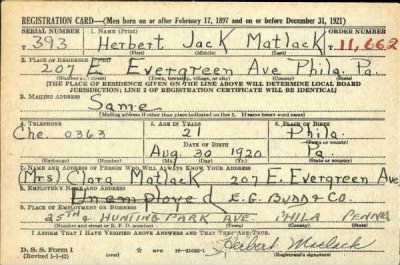 REGISTRATION CARD—(Men born on or after February 17, 1897 and on or before December 31, 1921)
SERIAL NUMBER 1. NAME (Print) ORDER NUMBER
T 393 Herbert Jack Matlack T 11,662
(First) (Middle) (Last)
2. PLACE OF RESIDENCE (Print)
207 E Evergreen Ave Phila. Pa.
(Number and street) (Town, township, village, or city) (County) (State)
[THE PLACE OF RESIDENCE GIVEN ON THE LINE ABOVE WILL DETERMINE LOCAL BOARD
JURISDICTION; LINE 2 OF REGISTRATION CERTIFICATE WILL BE IDENTICAL]
3. MAILING ADDRESS
Same
[Mailing address if other than place indicated on line 2. If same insert word same]
4. TELEPHONE 5. AGE IN YEARS 6. PLACE OF BIRTH
Che. 0363 21 Phila.
DATE OF BIRTH (Town or county)
Aug. 30 1920 Pa.
(Exchange) (Number) (Mo.) (Day) (Yr.) (State or country)
7. NAME AND ADDRESS OF PERSON WHO WILL ALWAYS KNOW YOUR ADDRESS
(Mrs) Clara Matlack 207 E. Evergreen Ave
8. EMPLOYER'S NAME AND ADDRESS
Unemployed E.G. BUDD & CO.
9. PLACE OF EMPLOYMENT OR BUSINESS
25TH & HUNTING PARK AVE. PHILA PENNA
(Number and street or R. F. D. number) (Town) (County) (State)
I AFFIRM THAT I HAVE VERIFIED ABOVE ANSWERS AND THAT THEY ARE TRUE.
D. S. S. Form 1 Herbert Matlack
(Revised 1-1-42) (Registrant's signature)